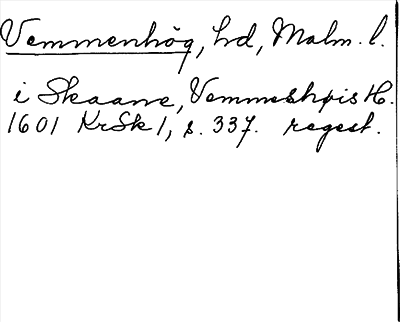 Vemmenhög, hd, Malm. l.
i Skaane, Vemmeshøis H.
1601 KrSk 1, s. 337. regest.